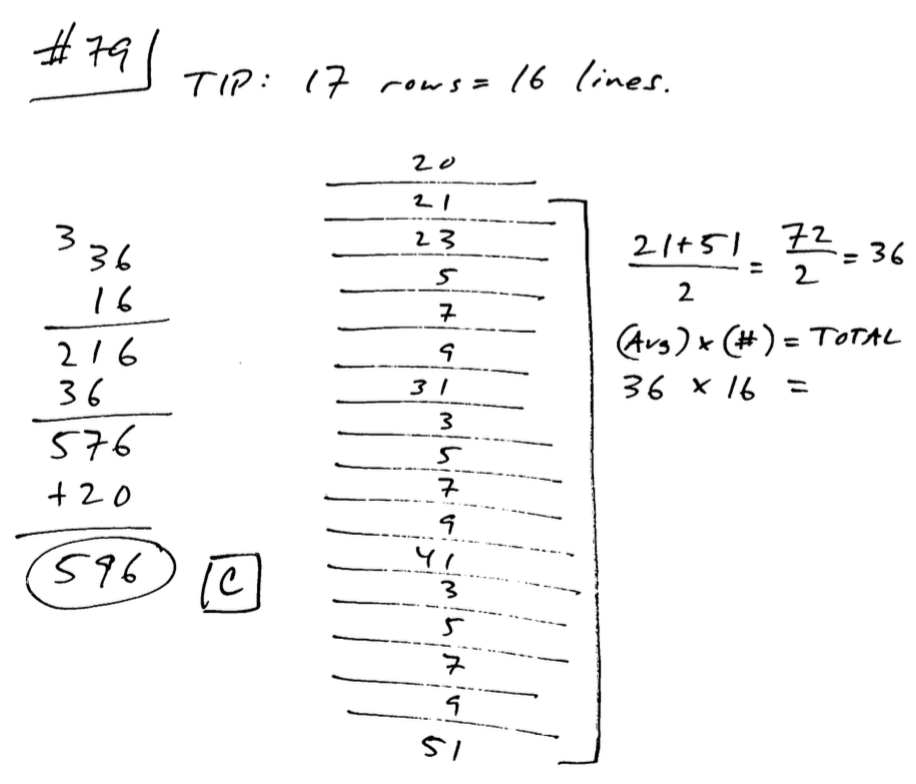 #79
TIP: 17 rows = 16 lines.
3
36
16
216
36
576
+20
596
C
20
21
23
5
7
9
31
3
5
7
9
41
3
5
7
9
51
21+51 / 2 = 72 / 2 = 36
(Avg) x (#) = TOTAL
36 x 16 =